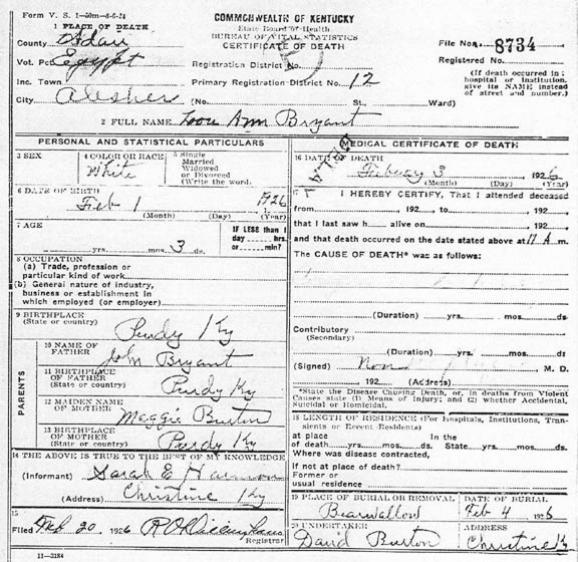 Form V. S. 1-50m-8-6-24
COMMONWEALTH OF KENTUCKY
State Board of Health
BUREAU OF VITAL STATISTICS
CERTIFICATE OF DEATH
1 PLACE OF DEATH
County Adair
File No. 8734
Vot. Pct Egypt
Registration District No. 5
Registered No.
Inc. Town
Primary Registration District No. 12
(If death occurred in a hospital or institution, give its NAME instead of street and number.)
City
(No. St. Ward)
2 FULL NAME Lou Ann Bryant
PERSONAL AND STATISTICAL PARTICULARS
3 SEX
4 COLOR OR RACE
White
5 Single
Married
Widowed
or Divorced
(Write the word.
6 DATE OF BIRTH
Feb 1 1926
(Month) (Day) (Year)
7 AGE
yrs. mos. 3 ds.
IF LESS than 1
day hrs.
or min?
8 OCCUPATION
(a) Trade, profession or
particular kind of work
(b) General nature of industry,
business or establishment in
which employed (or employer)
9 BIRTHPLACE
(State or country)
Purdy Ky
PARENTS
10 NAME OF
FATHER
John Bryant
11 BIRTHPLACE
OF FATHER
(State or country)
Purdy Ky
12 MAIDEN NAME
OF MOTHER
Maggie Burton
13 BIRTHPLACE
OF MOTHER
(State or country)
Purdy Ky
14 THE ABOVE IS TRUE TO THE BEST OF MY KNOWLEDGE
(Informant) Sarah E
(Address) Christine Ky
15
Filed Feb 20 1926
Registrar
11-3184
MEDICAL CERTIFICATE OF DEATH
DELAY
16 DATE OF DEATH
3 1926
(Month) (Day) (Year)
17 I HEREBY CERTIFY, That I attended deceased
from , 192 , to , 192
that I last saw h alive on , 192
and that death occurred on the date stated above at 11 A m.
The CAUSE OF DEATH* was as follows:
(Duration) yrs. mos. ds
Contributory
(Secondary)
(Duration) yrs. mos. ds
(Signed) M. D.
192 (Address)
*State the Disease Causing Death, or, in deaths from Violent
Causes state (1) Means of Injury; and (2) whether Accidental,
Suicidal or Homicidal.
18 LENGTH OF RESIDENCE (For hospitals, Institutions, Tran-
sients or Recent Residents)
at place In the
of death yrs. mos. ds. State yrs. mos. ds
Where was disease contracted,
if not at place of death?
Former or
usual residence
19 PLACE OF BURIAL OR REMOVAL
Bearwallow
DATE OF BURIAL
Feb 4 1926
20 UNDERTAKER
David Burton
ADDRESS
Christine Ky